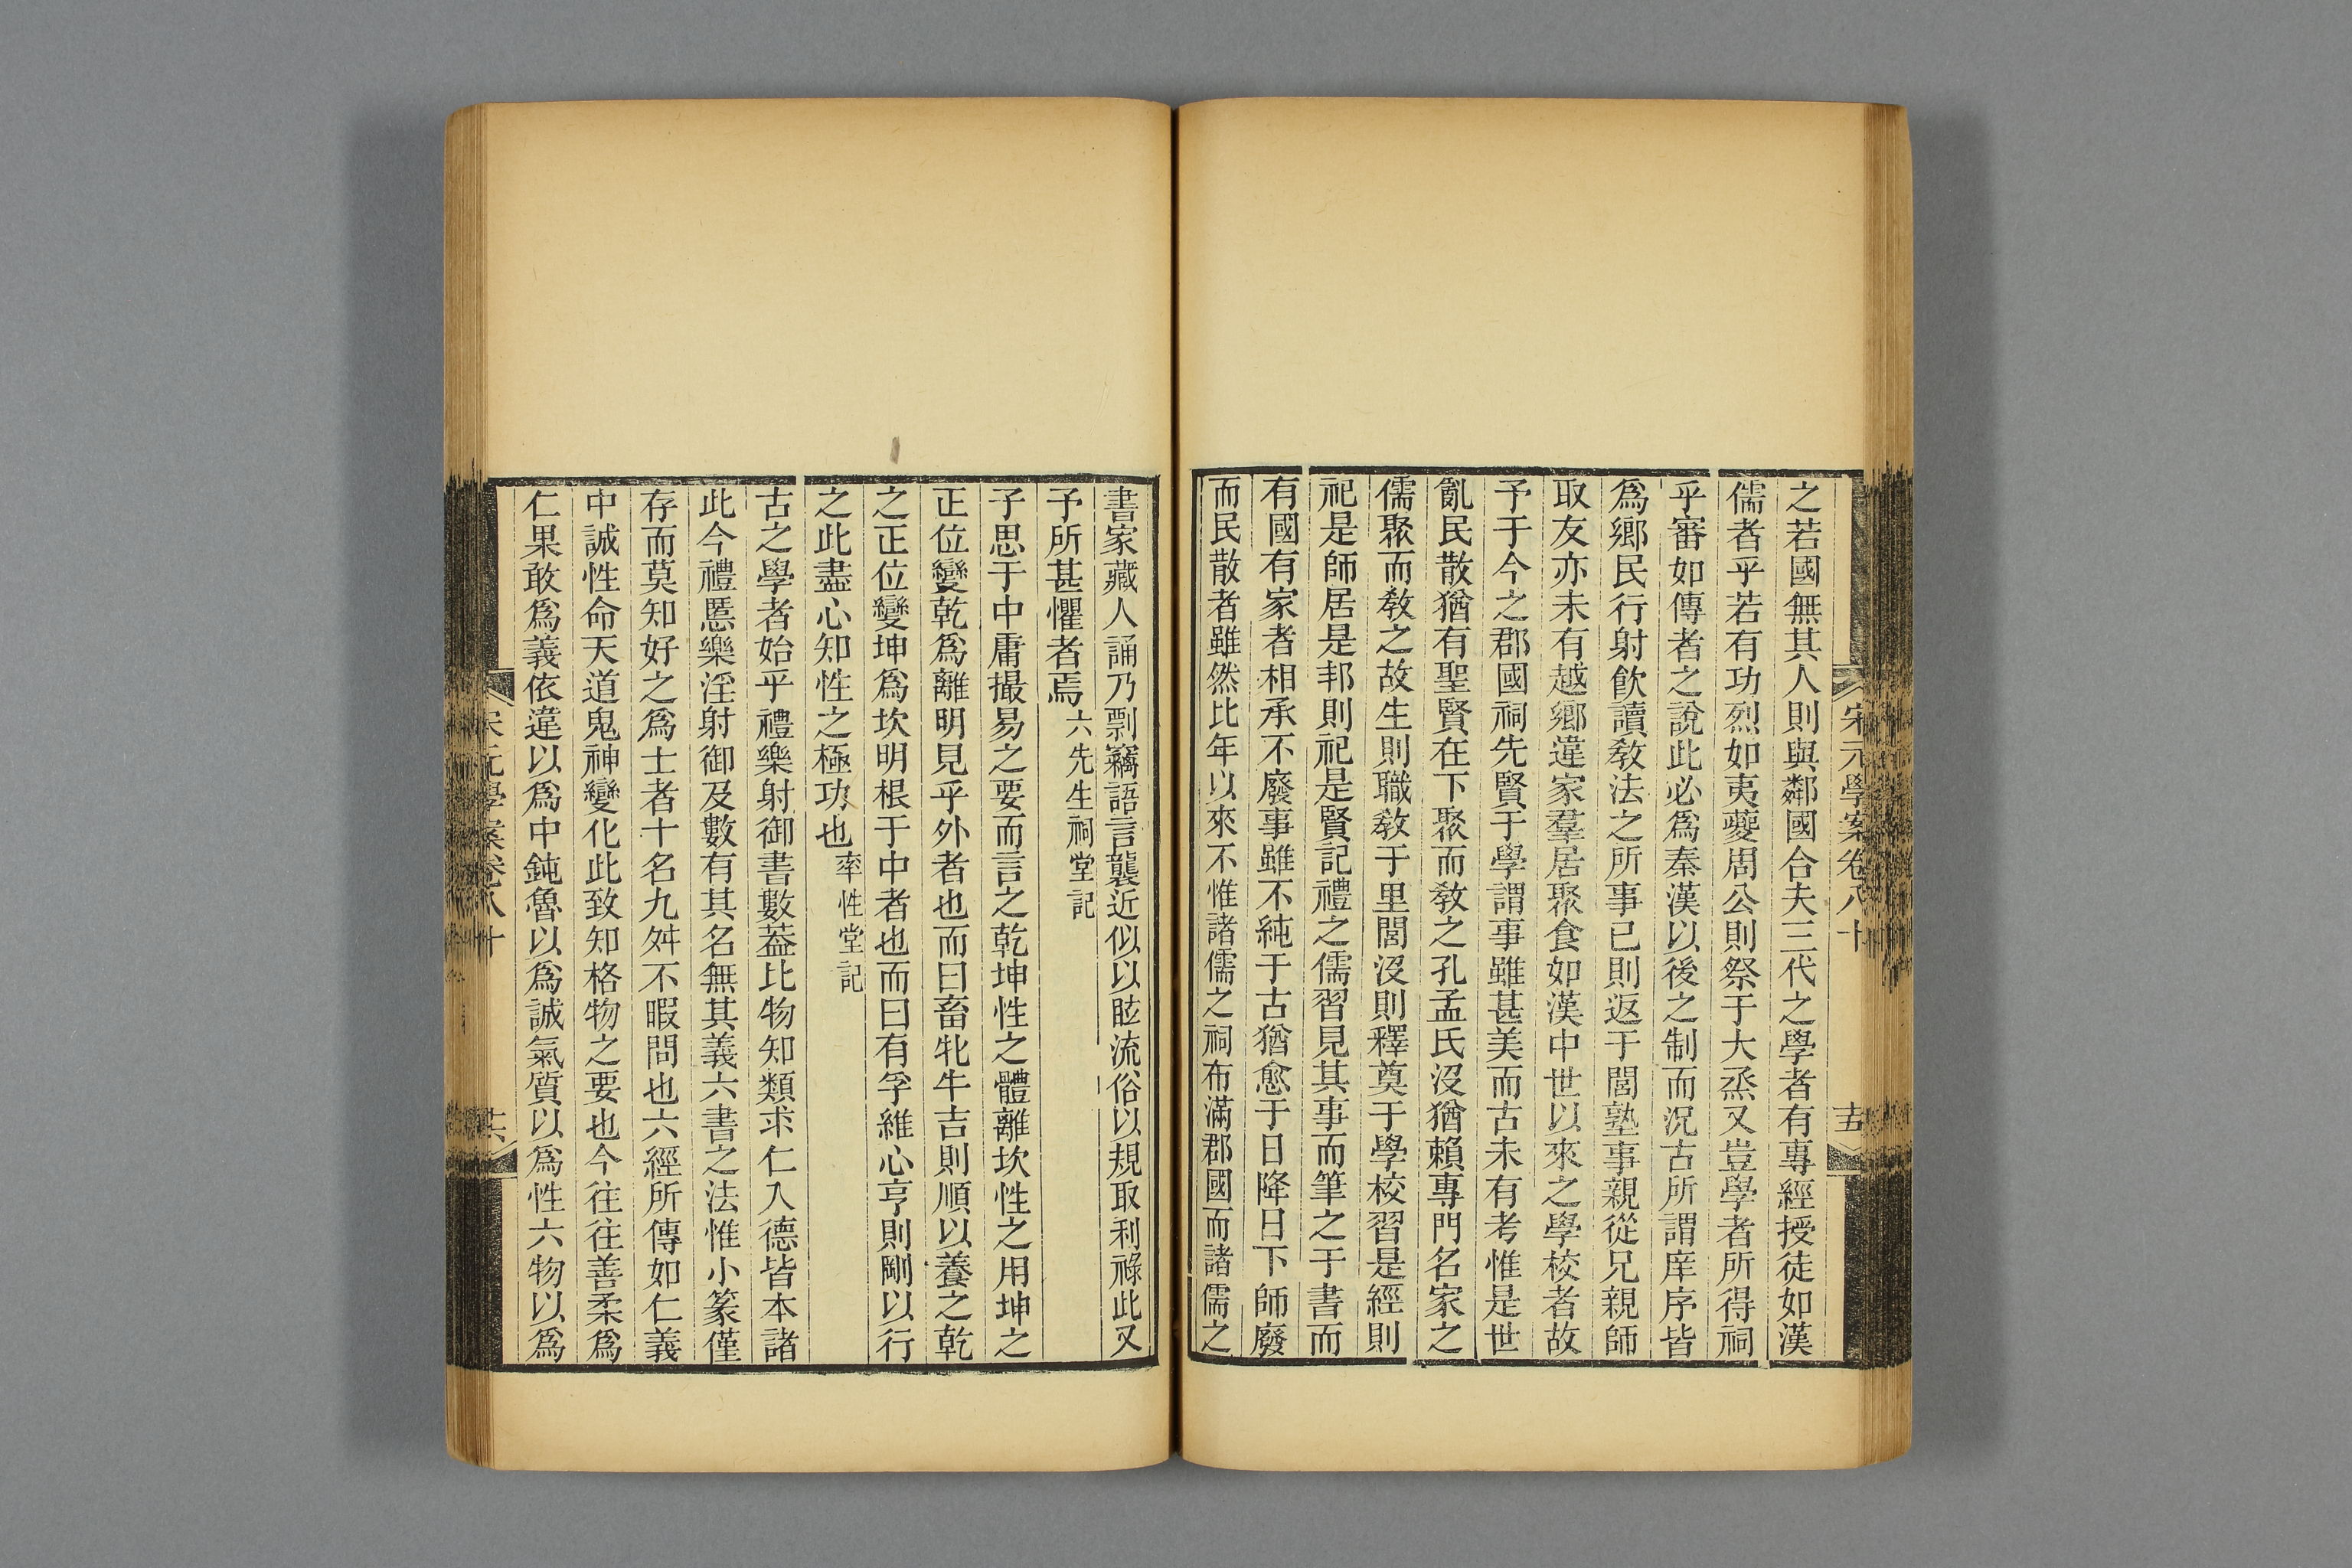 宋元學案卷八十
十五
之若國無其人則與鄰國合夫三代之學者有專經授徒如漢
儒者乎若有功烈如夷夔周公則祭于大烝又豈學者所得祠
乎審如傳者之說此必爲秦漢以後之制而況古所謂庠序皆
爲鄉民行射飮讀敎法之所事已則返于閭塾事親從兄親師
取友亦未有越鄉違家羣居聚食如漢中世以來之學校者故
予于今之郡國祠先賢于學謂事雖甚美而古未有考惟是世
亂民散猶有聖賢在下聚而敎之孔孟氏沒猶賴專門名家之
儒聚而敎之故生則職敎于里閭沒則釋奠于學校習是經則
祀是師居是邦則祀是賢記禮之儒習見其事而筆之于書而
有國有家者相承不廢事雖不純于古猶愈于日降日下師廢
而民散者雖然比年以來不惟諸儒之祠布滿郡國而諸儒之
書家藏人誦乃剽竊語言襲近似以眩流俗以規取利祿此又
予所甚懼者焉六先生祠堂記
子思于中庸撮易之要而言之乾坤性之體離坎性之用坤之
正位變乾爲離明見乎外者也而曰畜牝牛吉則順以養之乾
之正位變坤爲坎明根于中者也而曰有孚維心亨則剛以行
之此盡心知性之極功也率性堂記
古之學者始乎禮樂射御書數葢比物知類求仁入德皆本諸
此今禮慝樂淫射御及數有其名無其義六書之法惟小篆僅
存而莫知好之爲士者十名九舛不暇問也六經所傳如仁義
中誠性命天道鬼神變化此致知格物之要也今往往善柔爲
仁果敢爲義依違以爲中鈍魯以爲誠氣質以爲性六物以爲
宋元學案卷八十
十六